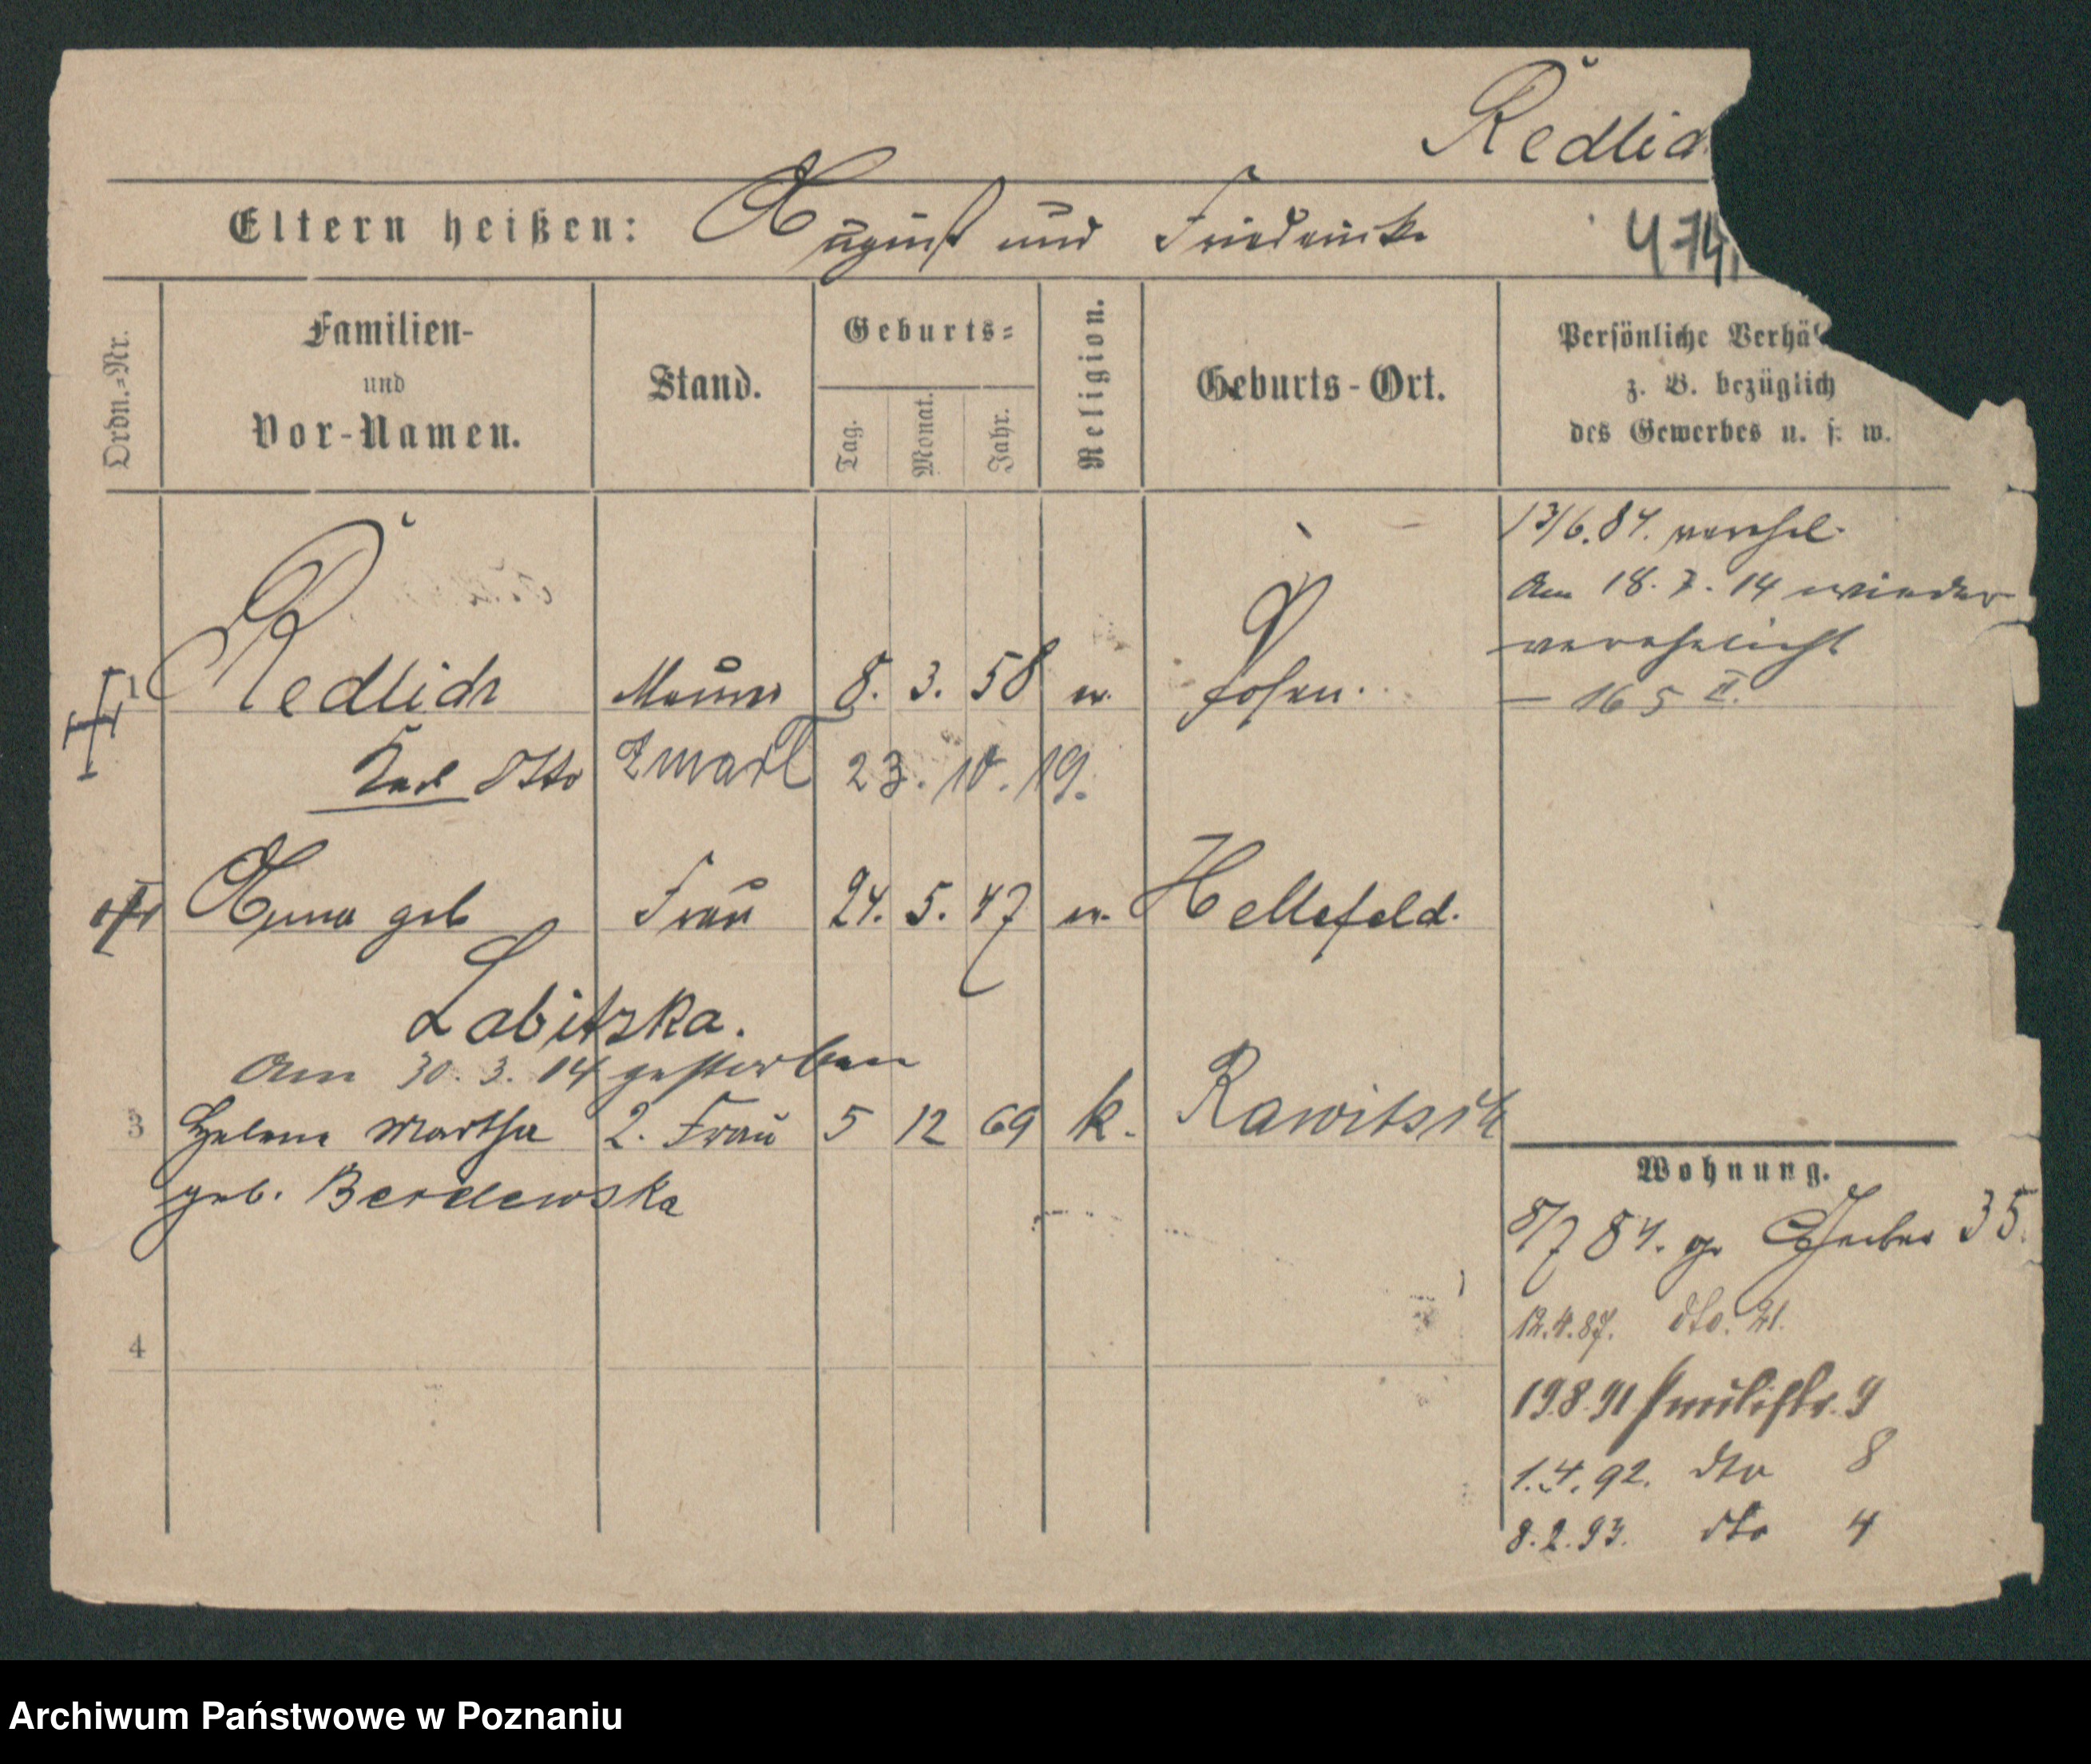 Redlich
Eltern heißen: August und Friederike
474
Ordn.=Nr.
Familien-
und
Vor-Namen.
Stand.
Geburts=
Tag.
Monat.
Jahr.
Religion.
Geburts-Ort.
Persönliche Verhäl
z. B. bezüglich
des Gewerbes u. s. w.
13/6.84. verehel.
Am 18. 7. 14 wieder
verehelicht
— 165 II.
1 Redlich Maurer 8. 3. 58 ev. Posen.
Karl Otto 23. 10. 19.
Anna geb Frau 24. 5. 47 ev. Hellefeld.
Labitzka.
Am 30. 3. 14 gestorben
3 Helene Martha 2. Frau 5 12 69 k. Rawitsch
geb. Berdewska
4
Wohnung.
8/7 84. gr Gerber 35.
12.4.87. dto. 21.
19.8.91 Paulistr. 9
1.4.92. dto 8
8.2.93. dto 4
Archiwum Państwowe w Poznaniu